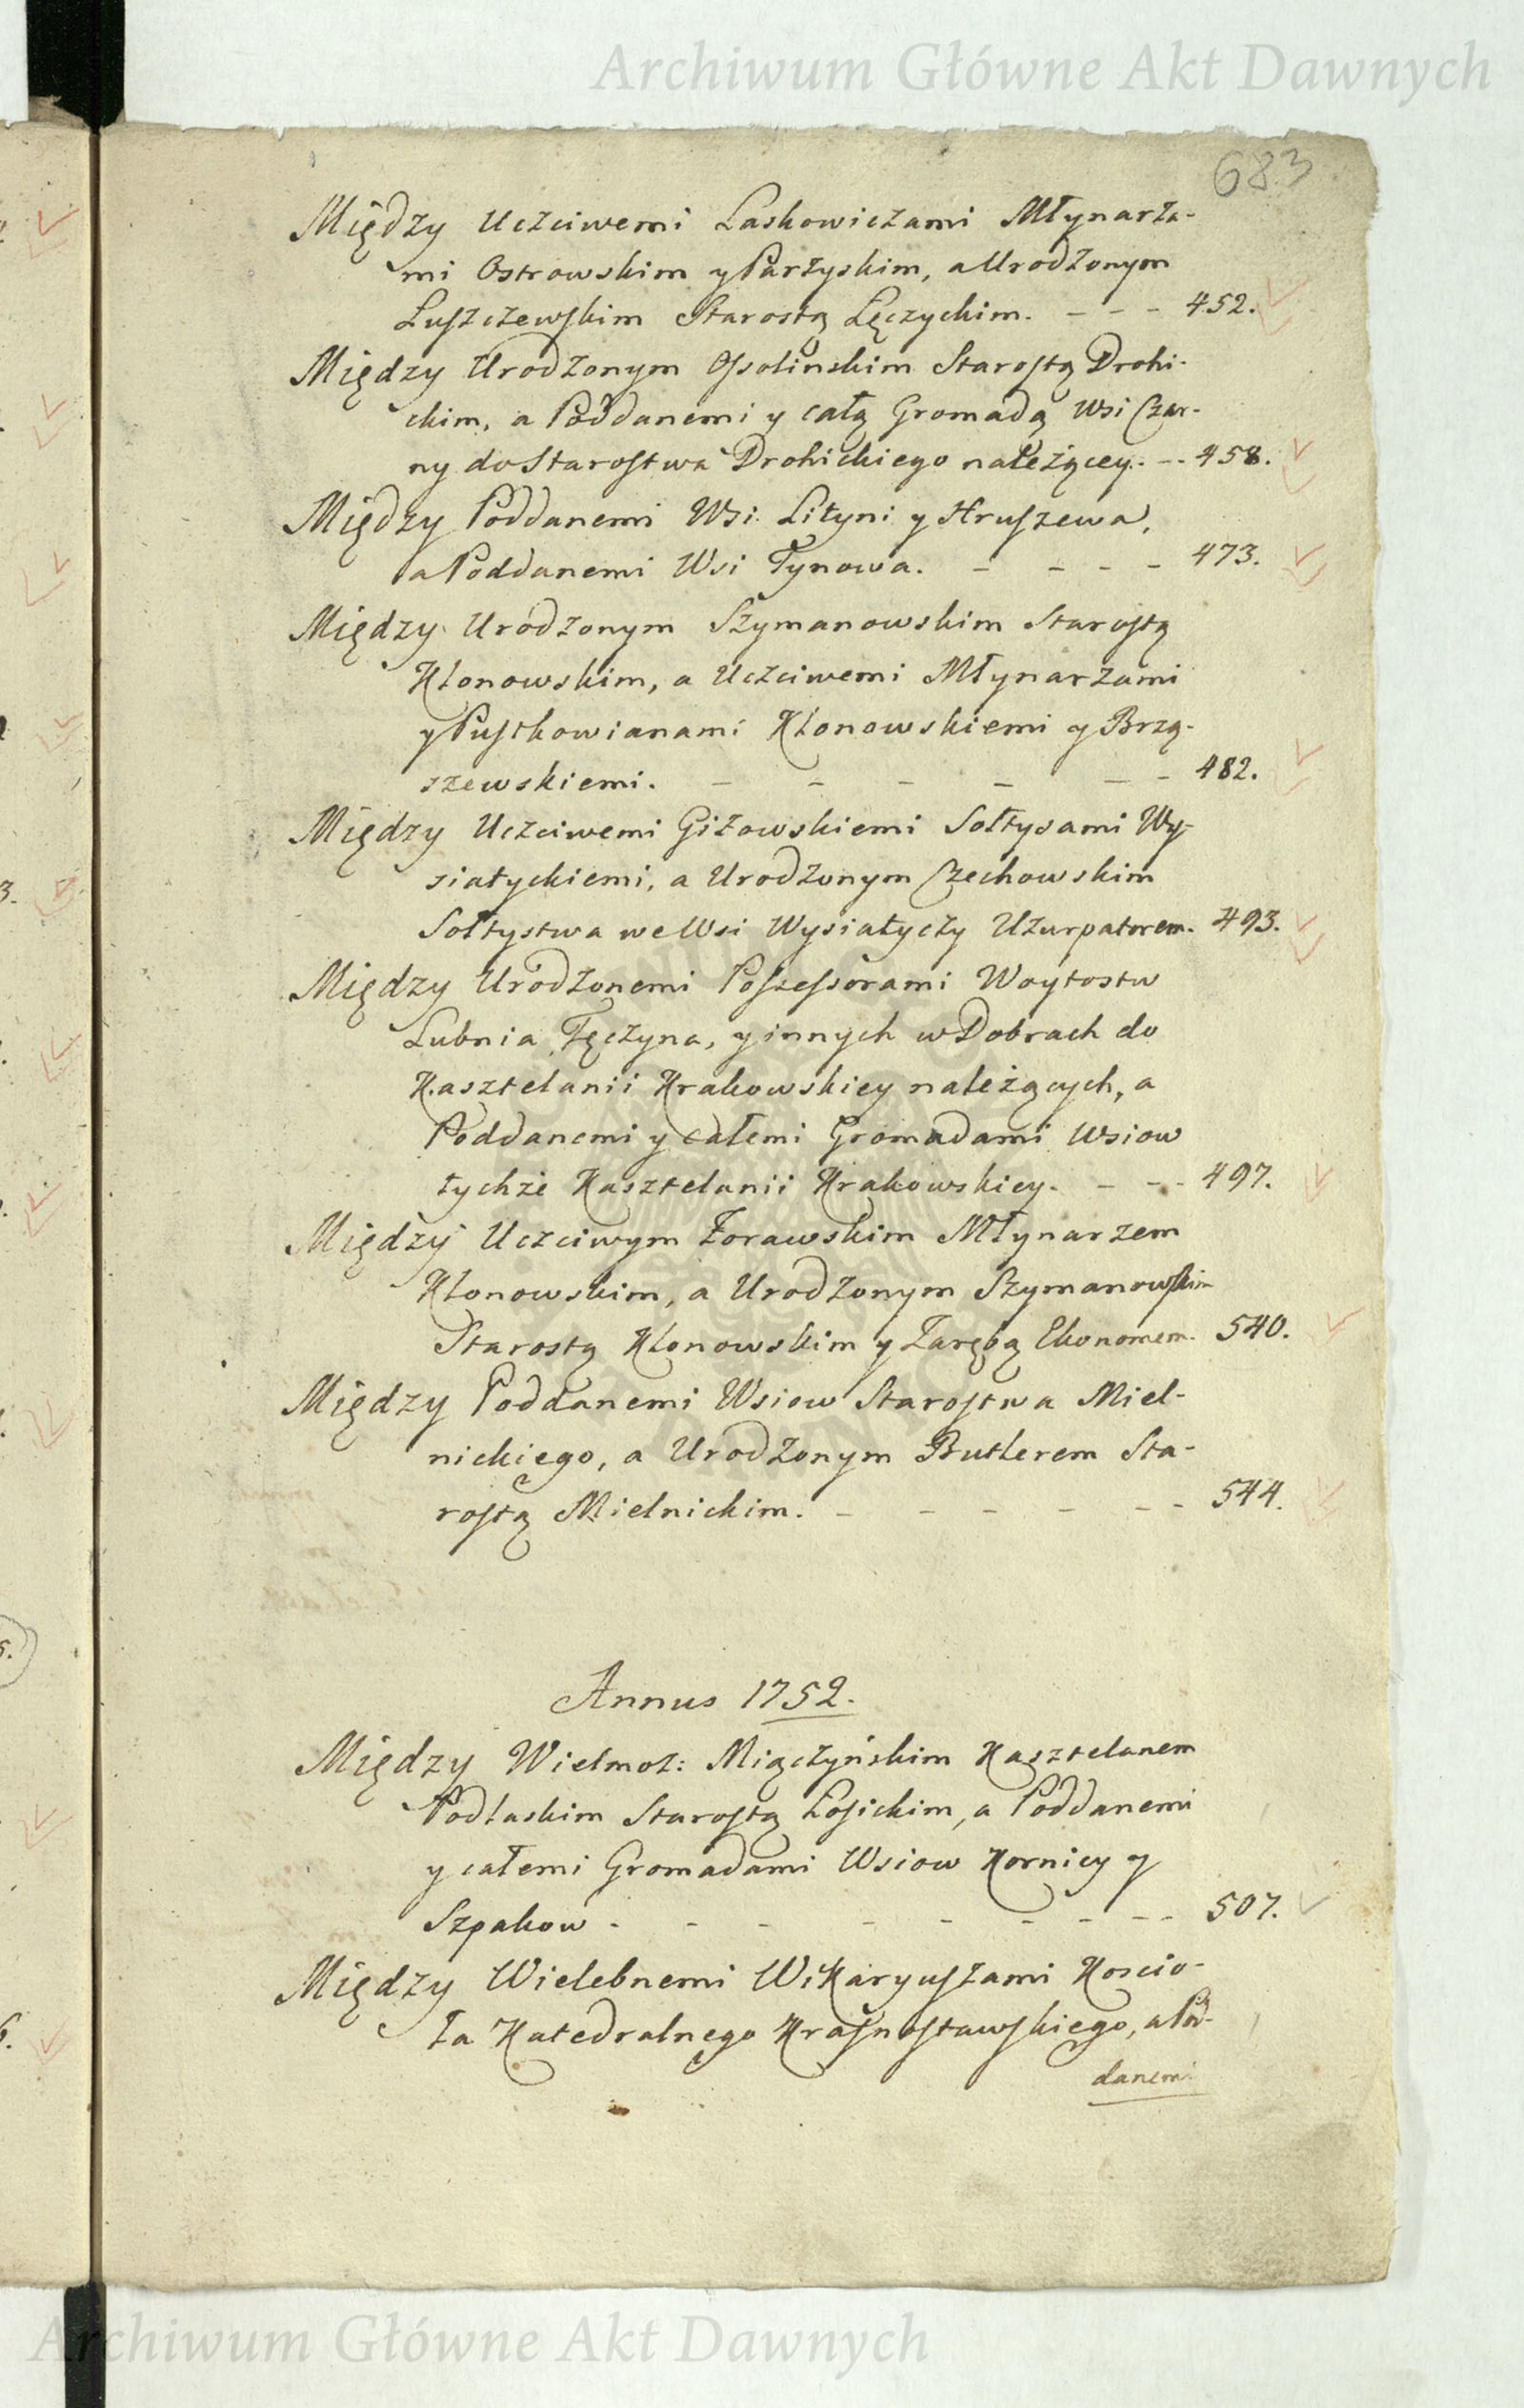 Archiwum Główne Akt Dawnych
683
Między Uczciwemi Laskowiczami Młynarza-
mi Ostrowskim y Parzyskim, a Urodzonym
Luszczewskim Starostą Łęczyckim. - - - 452.
Między Urodzonym Ossolinskim Starostą Drohi-
ckim, a Poddanemi y całą Gromadą Wsi Czar-
ny do Starostwa Drohickiego należącey. - - 458.
Między Poddanemi Wsi Lityni y Hruszewa,
a Poddanemi Wsi Tynowa. - - - - 473.
Między Urodzonym Szymanowskim Starostą
Klonowskim, a Uczciwemi Młynarzami
y Pustkowianami Klonowskiemi y Brzą-
szewskiemi. - - - - - - 482.
Między Uczciwemi Giżowskiemi Sołtysami Wy-
siatyckiemi, a Urodzonym Czechowskim
Sołtystwa we Wsi Wysiatyczy Uzurpatorem. 493.
Między Urodzonemi Possessorami Woytostw
Lubnia, Tęczyna, y innych w Dobrach do
Kasztelanii Krakowskiey należących, a
Poddanemi y całemi Gromadami Wsiow
tychże Kasztelanii Krakowskiey. - - - 497.
Między Uczciwym Żorawskim Młynarzem
Klonowskim, a Urodzonym Szymanowskim
Starostą Klonowskim y Zarębą Ekonomem. 540.
Między Poddanemi Wsiow Starostwa Miel-
nickiego, a Urodzonym Butlerem Sta-
rostą Mielnickim. - - - - - - 544.
Annus 1752.
Między Wielmoż: Miączyńskim Kasztelanem
Podlaskim Starostą Łosickim, a Poddanemi
y całemi Gromadami Wsiow Kornicy y
Szpakow - - - - - - - - - 507.
Między Wielebnemi Wikaryuszami Koscio-
ła Katedralnego Krasnostawskiego, a Pod-
danemi
Archiwum Główne Akt Dawnych